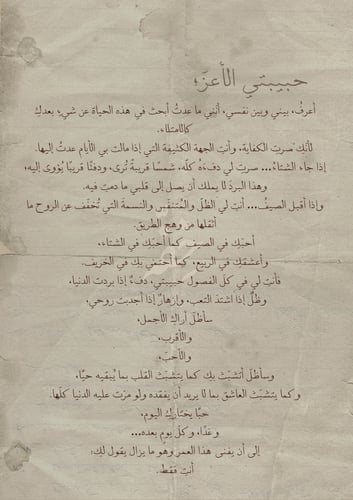 حبيبتي الأعزّ؛
أعرفُ، بيني وبين نفسي، أنّني ما عدتُ أبحث في هذه الحياة عن شيءٍ بعدكِ
كالامتلاء.
لأنّكِ صرتِ الكفاية، وأنتِ الجهة الكثيفة التي إذا مالت بي الأيام عدتُ إليها.
إذا جاء الشتاء... صرتِ لي دفءَهُ كلّه، شمسًا قريبةً تُرى، ودفئًا قريبًا يُؤوى إليه،
وهذا البردُ لا يملك أن يصل إلى قلبي ما دمتِ فيه.
وإذا أقبل الصيفُ... أنتِ لي الظلّ والمُتنفَّس والنسمة التي تُخفّف عن الروح ما
أثقلها من وهج الطريق.
أحبّكِ في الصيف كما أحبّكِ في الشتاء،
وأعشقكِ في الربيع، كما أحتمي بكِ في الخريف.
فأنتِ لي في كلّ الفصول حبيبتي، دفءٌ إذا بردت الدنيا،
وظلٌّ إذا اشتدّ التعب، وإزهارٌ إذا أجدبت روحي،
سأظلّ أراكِ الأجمل،
والأقرب،
والأحبّ،
وسأظلّ أتشبّث بكِ كما يتشبّث القلب بما يُبقيه حيًّا،
وكما يتشبّث العاشق بما لا يريد أن يفقده ولو مرّت عليه الدنيا كلّها.
حبًّا يختاركِ اليوم،
وغدًا، وكلّ يومٍ بعده...
إلى أن يفنى هذا العمر وهُو ما يزال يقول لكِ:
أنتِ فقط.